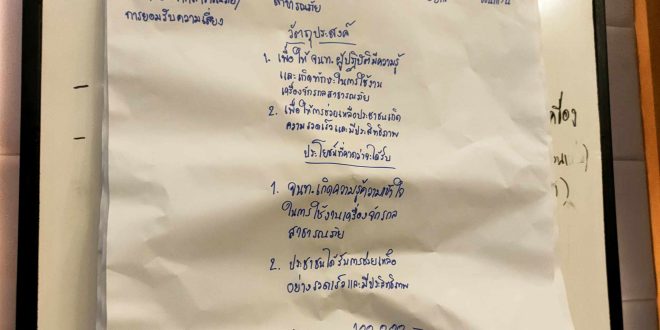 การยอมรับความเสี่ยง
สาธารณภัย
วัตถุประสงค์
1. เพื่อให้ จนท. ผู้ปฏิบัติมีความรู้
และเกิดทักษะในการใช้งาน
เครื่องจักรกลสาธารณภัย
2. เพื่อให้การช่วยเหลือประชาชนเกิด
ความรวดเร็วและมีประสิทธิภาพ
ประโยชน์ที่คาดว่าจะได้รับ
1. จนท. เกิดความรู้ความเข้าใจ
ในการใช้งานเครื่องจักรกล
สาธารณภัย
2. ประชาชนได้รับการช่วยเหลือ
อย่างรวดเร็วและมีประสิทธิภาพ